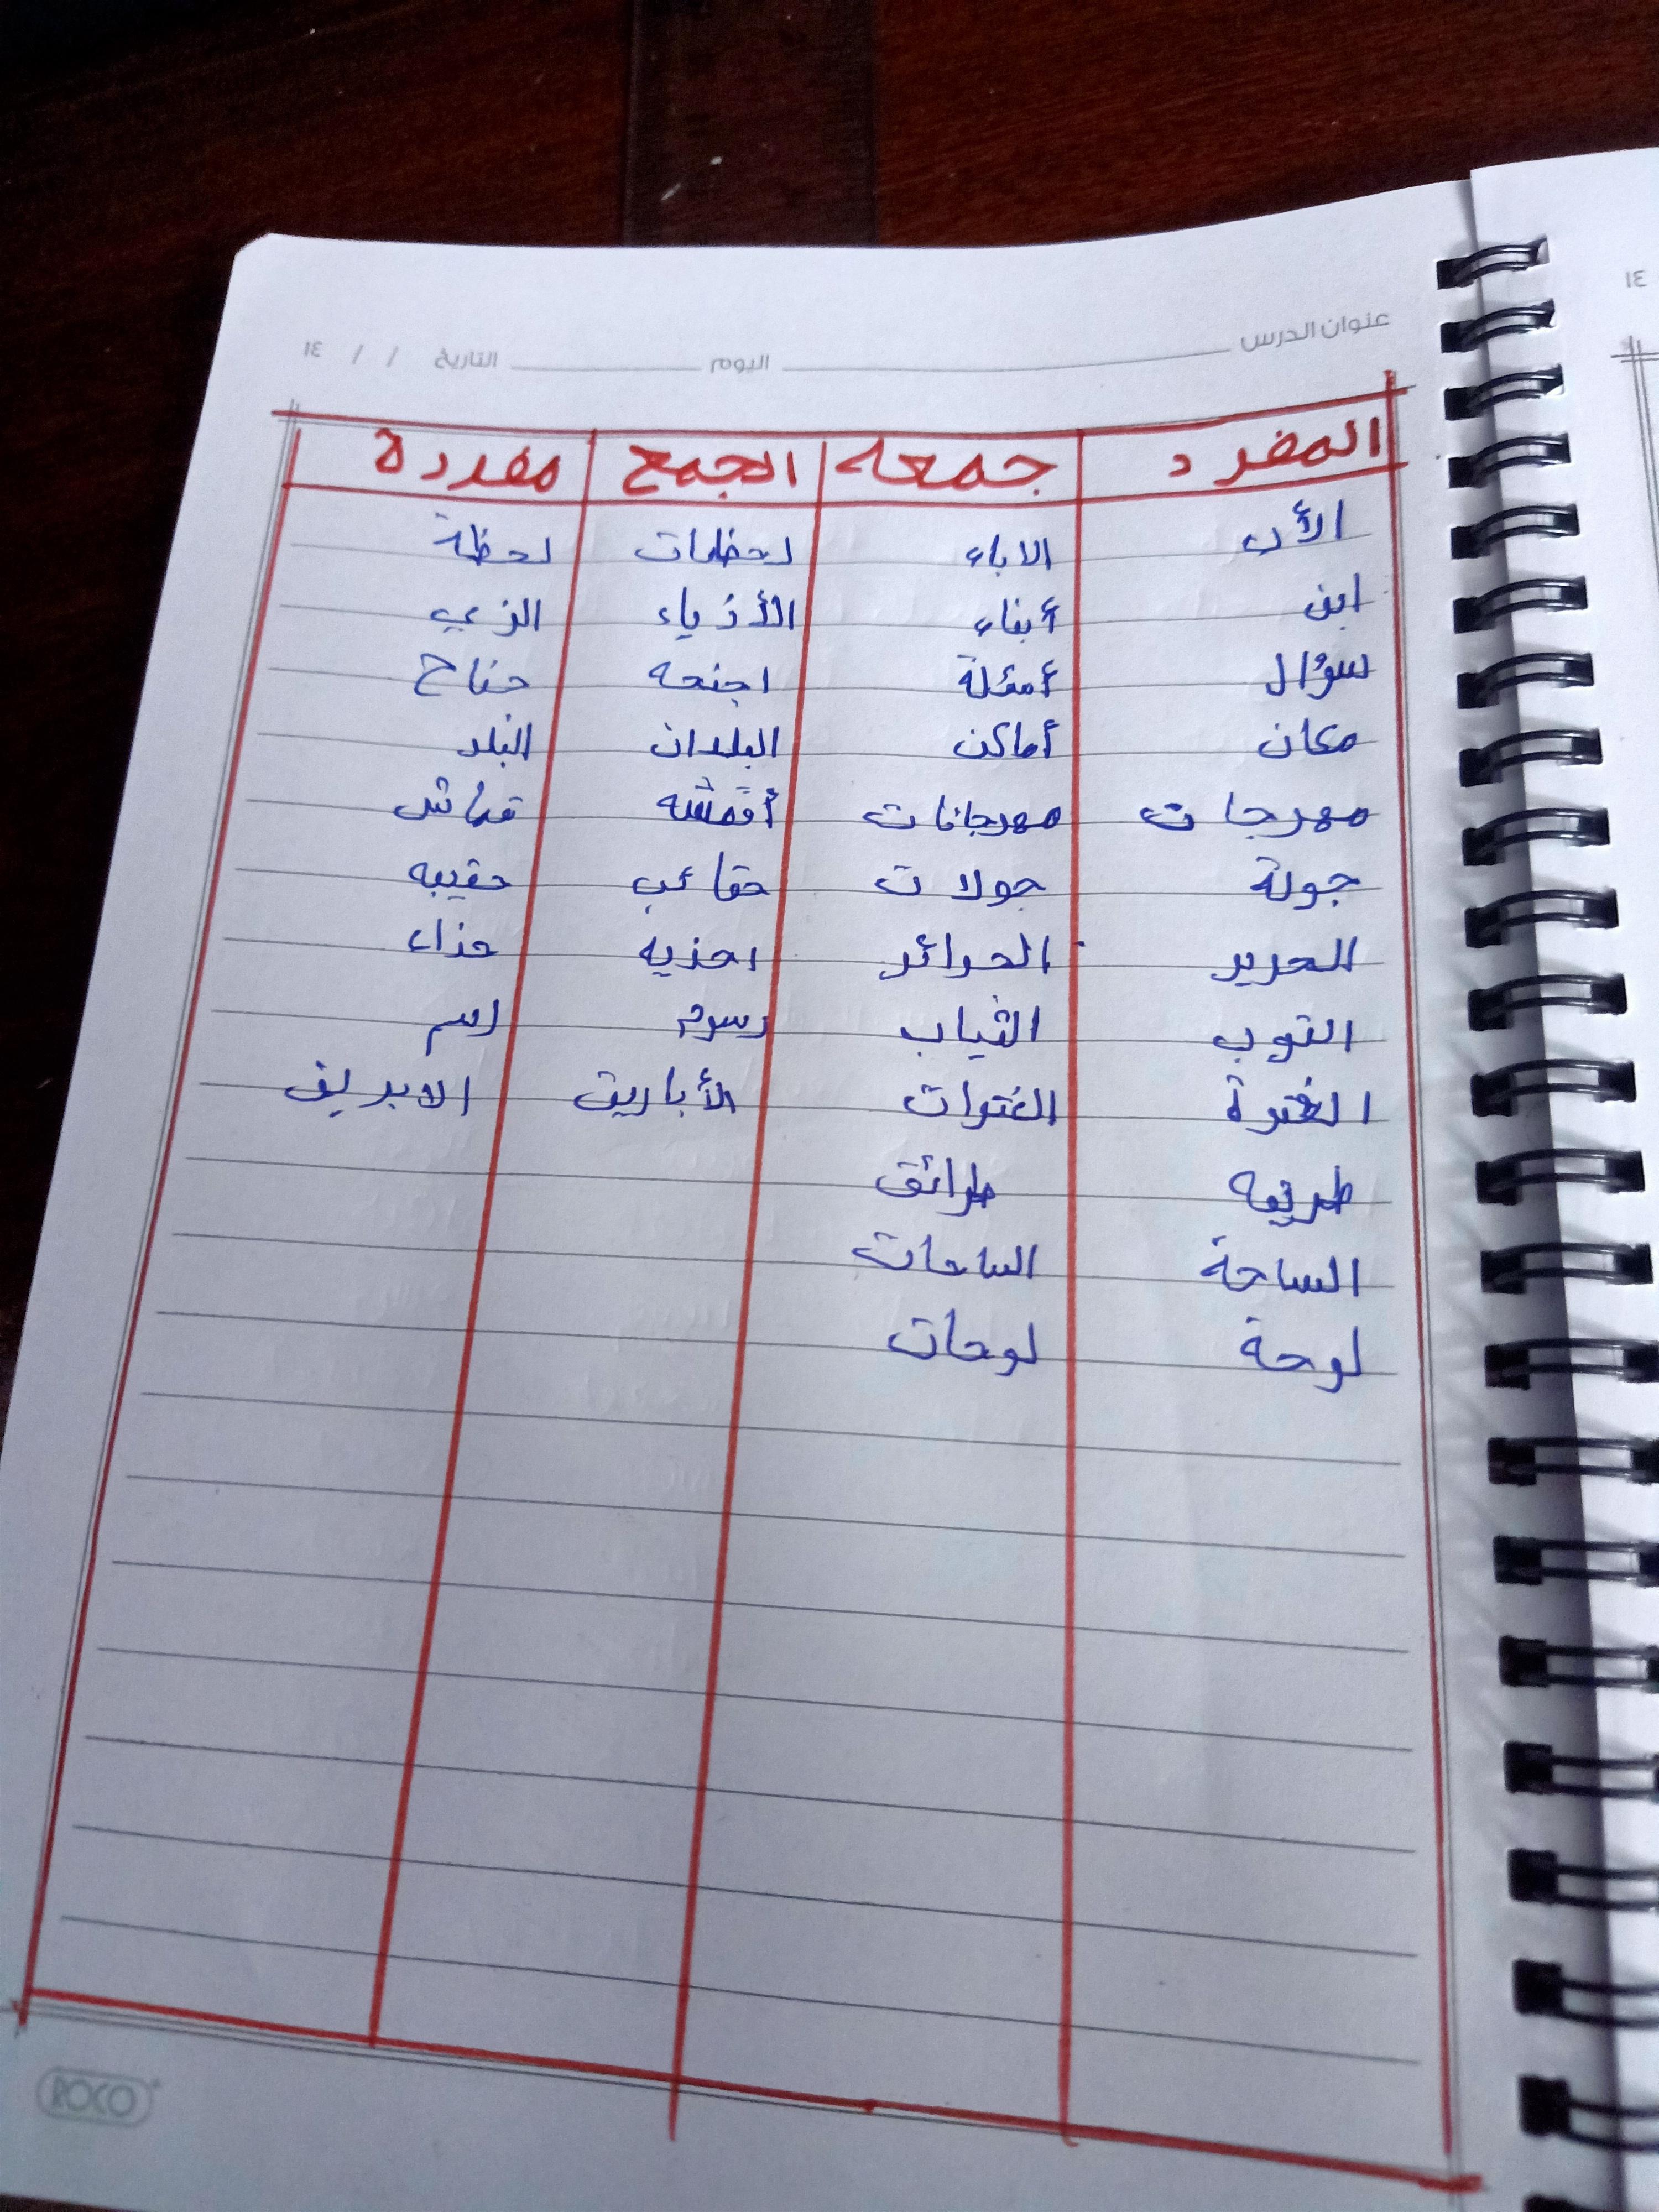 عنوان الدرس اليوم التاريخ / / ١٤
المفرد جمعه الجمع مفرده
الأب الاباء لحظات لحظة
ابن أبناء الأزياء الزي
سؤال أسئلة اجنحه جناح
مكان أماكن البلدان البلد
مهرجان مهرجانات أقمشه قماش
جولة جولات حقائب حقيبه
الحرير الحرائر احذيه حذاء
الثوب الثياب رسوم رسم
الغترة الغترات الأباريق الابريق
طريقه طرائق
الساحة الساحات
لوحة لوحات
ROCO